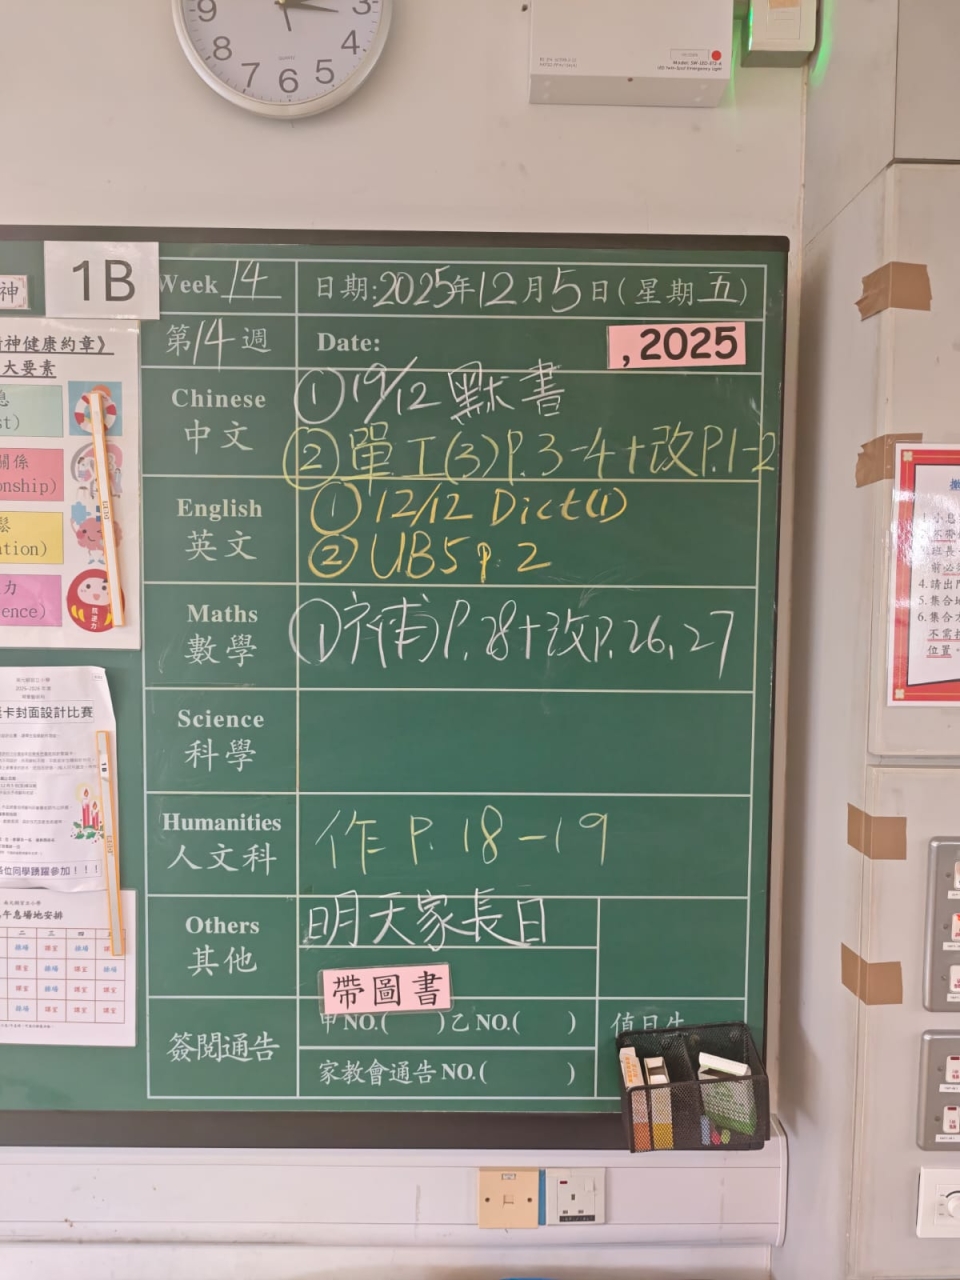 9 8 7 6 5 4 3
QUARTZ
神
1B
Week 14
日期:2025年12月5日(星期五)
第14週
Date:
, 2025
Chinese
中文
①19/12 默書
②單工(3)P.3-4+改P.1-2
English
英文
①12/12 Dict(1)
②UB5 p.2
Maths
數學
①補P.28+改P.26、27
Science
科學
Humanities
人文科
作 P.18-19
Others
其他
明天家長日
帶圖書
簽閱通告
甲NO.( )乙NO.( )
值日生
家教會通告NO.( )
神健康約章》
大要素
st)
關係
onship)
鬆
ation)
力
ence)
卡封面設計比賽
各位同學踴躍參加!!!
午息場地安排
二 三 四 五
1.小息
班長
前必
4.請出
5.集合地
6.集合
不需
位置。